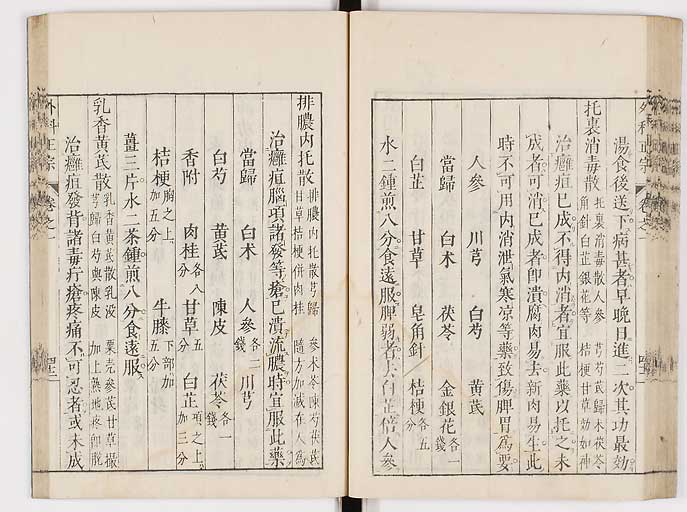 外科正宗 卷之一
湯食後送下病甚者早晚日進二次其功最効
托裏消毒散 托裏消毒散人參 芎芍芪歸术茯苓
角針白芷銀花等 桔梗甘草効如神
治癰疽已成不得內消者宜服此藥以托之未
成者可消已成者即潰腐肉易去新肉易生此
時不可用內消泄氣寒凉等藥致傷脾胃爲要
人參 川芎 白芍 黃芪
當歸 白术 茯苓 金銀花各一錢
白芷 甘草 皂角針 桔梗各五分
水二鍾煎八分食遠服脾弱者去白芷倍人參
排膿內托散 排膿內托散芎歸 參术苓陳芍茯芪
甘草桔梗併肉桂 隨方加减在人爲
治癰疽腦項諸發等瘡已潰流膿時宜服此藥
當歸 白术 人參各二錢 川芎
白芍 黃芪 陳皮 茯苓各一錢
香附 肉桂各八分 甘草五分 白芷項之上加三分
桔梗胸之上加五分 牛膝下部加五分
薑三片水二茶鍾煎八分食遠服
乳香黃芪散 乳香黃芪散乳没 粟壳參芪甘草撮
芎歸白芍與陳皮 加上熟地疼即脫
治癰疽發背諸毒疔瘡疼痛不可忍者或未成
外科正宗 卷之一